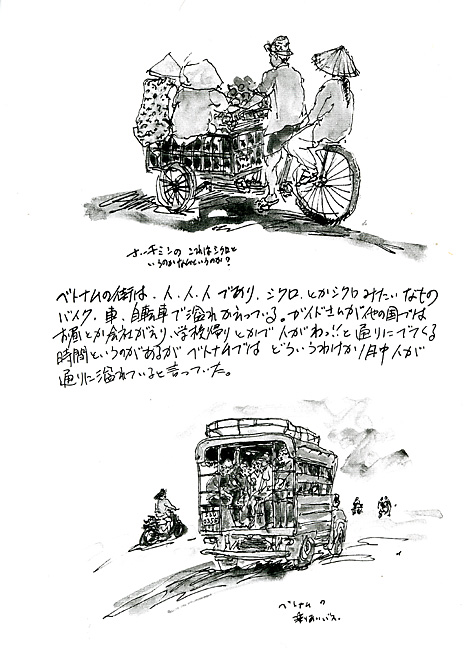 ホーチミンの これはシクロと
いうのかなんというのか?
ベトナムの街は、人、人、人であり、シクロ、とかシクロみたいなもの
バイク、車、自転車で溢れかえっている。ガイドさんが他の国では
お昼とか会社がえり、学校帰りとかで人がわっ!!と通りにでてくる
時間というのがあるがベトナムでは どういうわけか1日中人が
通りに溢れていると言っていた。
ベトナムの
乗りあいバス。